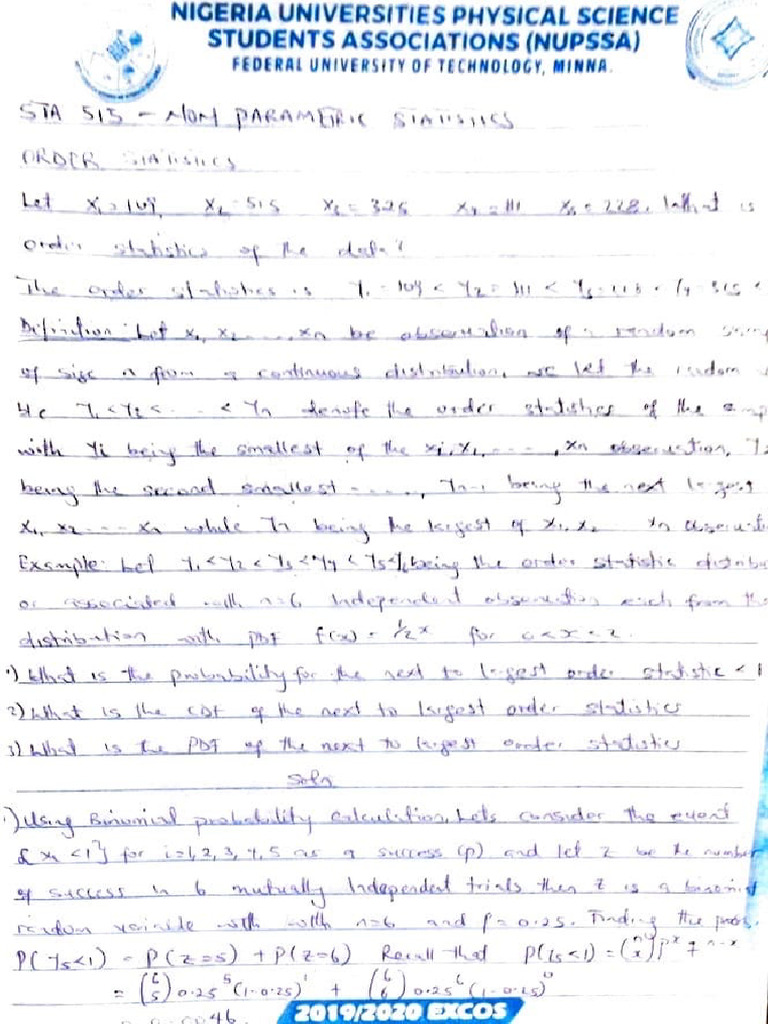 NIGERIA UNIVERSITIES PHYSICAL SCIENCE
STUDENTS ASSOCIATIONS (NUPSSA)
FEDERAL UNIVERSITY OF TECHNOLOGY, MINNA.
STA 515 - NON PARAMETRIC STATISTICS
ORDER STATISTICS
Let X₁ = 109, X₂ = 515 X₃ = 325 X₄ = 111 X₅ = 228. What is
order statistics of the data?
The order statistics is Y₁ = 109 < Y₂ = 111 <
Definition: Let x₁, x₂ ...., xn be observation of a random
of size n from a continuous distribution, we let the random
Y₁ < Y₂ < ... < Yn denote the order statistics of the
with Yi being the smallest of the x₁, x₂, ...., xn observation,
being the second smallest ...., Yn-1 being the next largest
x₁, x₂ ... xn while Yn being the largest of x₁, x₂ xn
Example: Let Y₁ < Y₂ < Y₃ < Y₄ < Y₅ < Y₆ being the order statistic
or associated with n=6 Independent observation each from the
distribution with pdf f(x) = ½x for 0 < x < 2.
1) What is the probability for the next to largest order statistic < 1
2) What is the CDF of the next to largest order statistics
3) What is the PDF of the next to largest order statistics
Soln
1) Using Binomial probability calculation, Lets consider the event
{xi < 1} for i=1, 2, 3, 4, 5 as a success (p) and let Z be the number
of success in 6 mutually Independent trials then Z is a binomial
random variable with with n=6 and P = 0.25. Finding the prob.
P(Y₅ < 1) = P(Z=5) + P(Z=6) Recall that P(Y₅ < 1) = (n x) p^x q^n-x
= (6 5) 0.25⁵ (1-0.25)¹ + (6 6) 0.25⁶ (1-0.25)⁰
= 0.0046
2019/2020 EXCOS